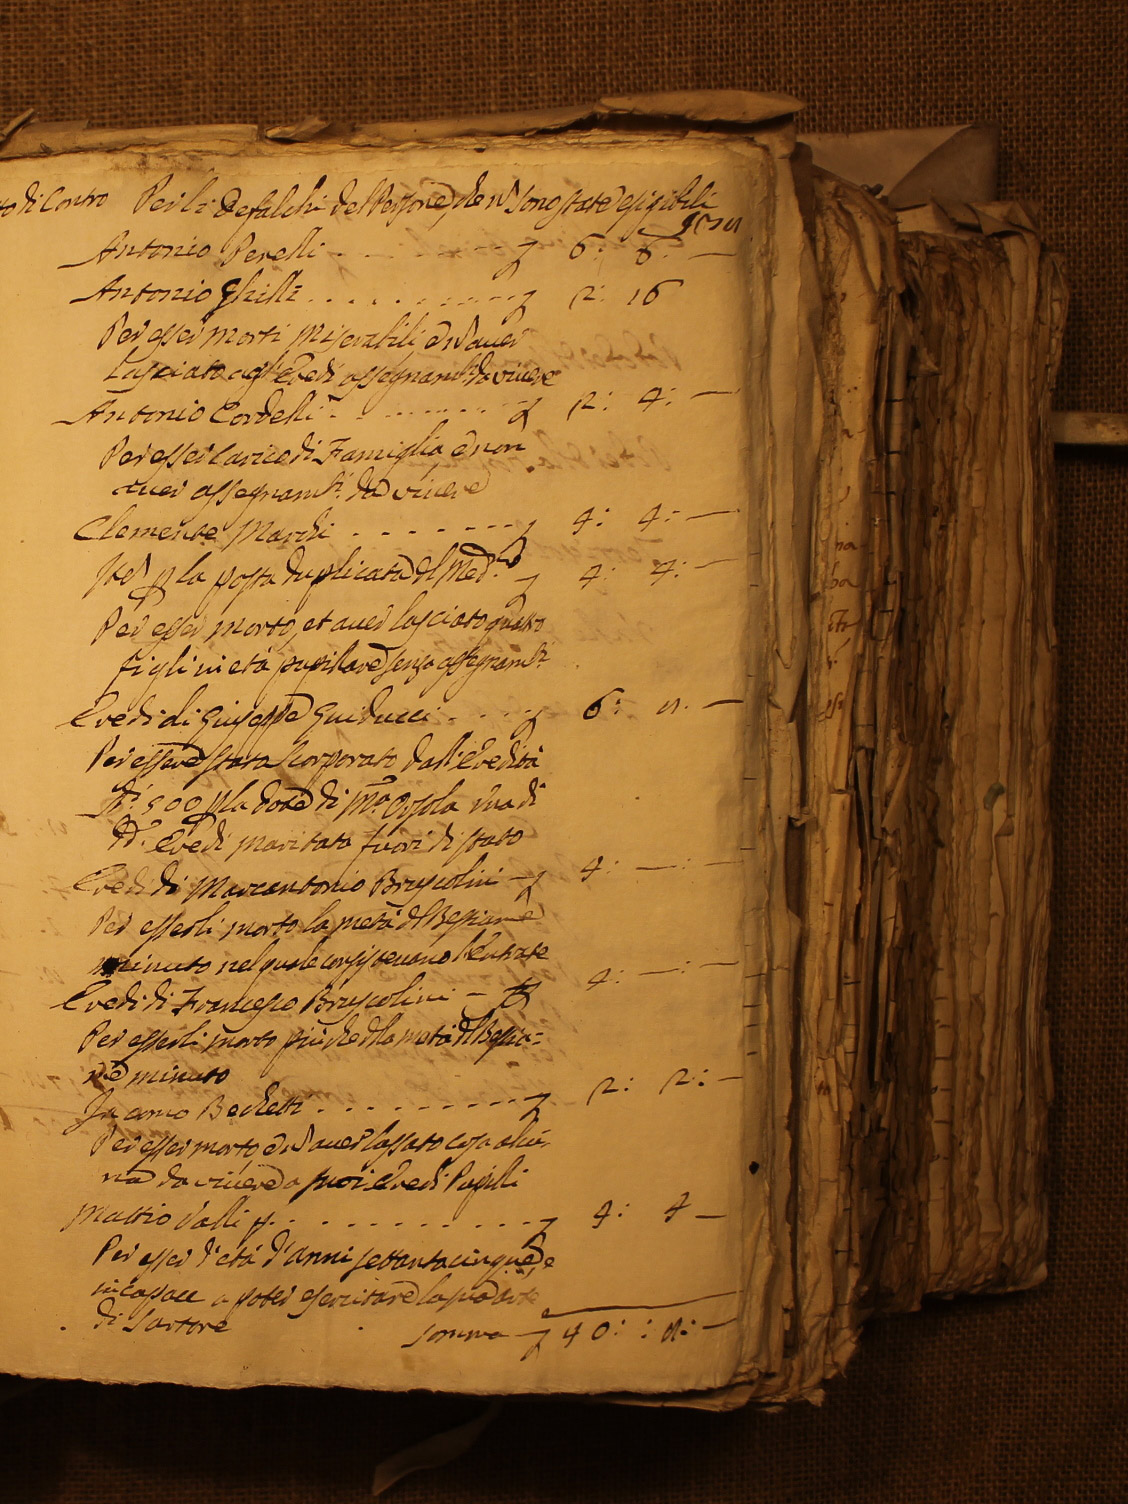 to di Contro Per li Defalchi del Persone, che nō sono state esigibili
Antonio Perelli - - - - - 6: 8: —
Antonio Ghilli . . . . . . . . . . 2: 16
Per esser morti miserabili e nō aver
lasciato agl'Eredi assegnamti da vivere
Antonio Cordelli - - - - - - 2: 4: —
Per esser carico di Famiglia e non
aver assegnamti da vivere
Clemente Marchi - - - - - - 4: 4: —
p la posta duplicata dl Medmo 4: 4: —
Per esser morto, et aver lasciato quattro
figli in età pupillare senza assegnamti
Eredi di Giuseppe Guiducci - - - - 6: —
Per essere stata scorporato dall'Eredità
500 p la dote di Ma Orsola una di
dti Eredi maritata fuori di stato
Eredi di Marcantonio Bruscolini — 4: —: —
Per esserli morto la metà dl Bestiame
minuto nel quale consistevano l'Entrate
Eredi di Francesco Bruscolini — 4: —: —
Per esserli morto più che dla metà dl Bestia=
me minuto
Giacomo Bechetti . . . . . . . . . 2: 2: —
Per esser morto e nō aver lassato cosa alcu-
na da vivere a suoi Eredi Pupilli
Mattio Valli . . . . . . . . . . 4: 4 —
Per esser d'età d'anni settantacinque, e
incapace a poter esercitare la sua arte
di Sartore
somma — 40: : —